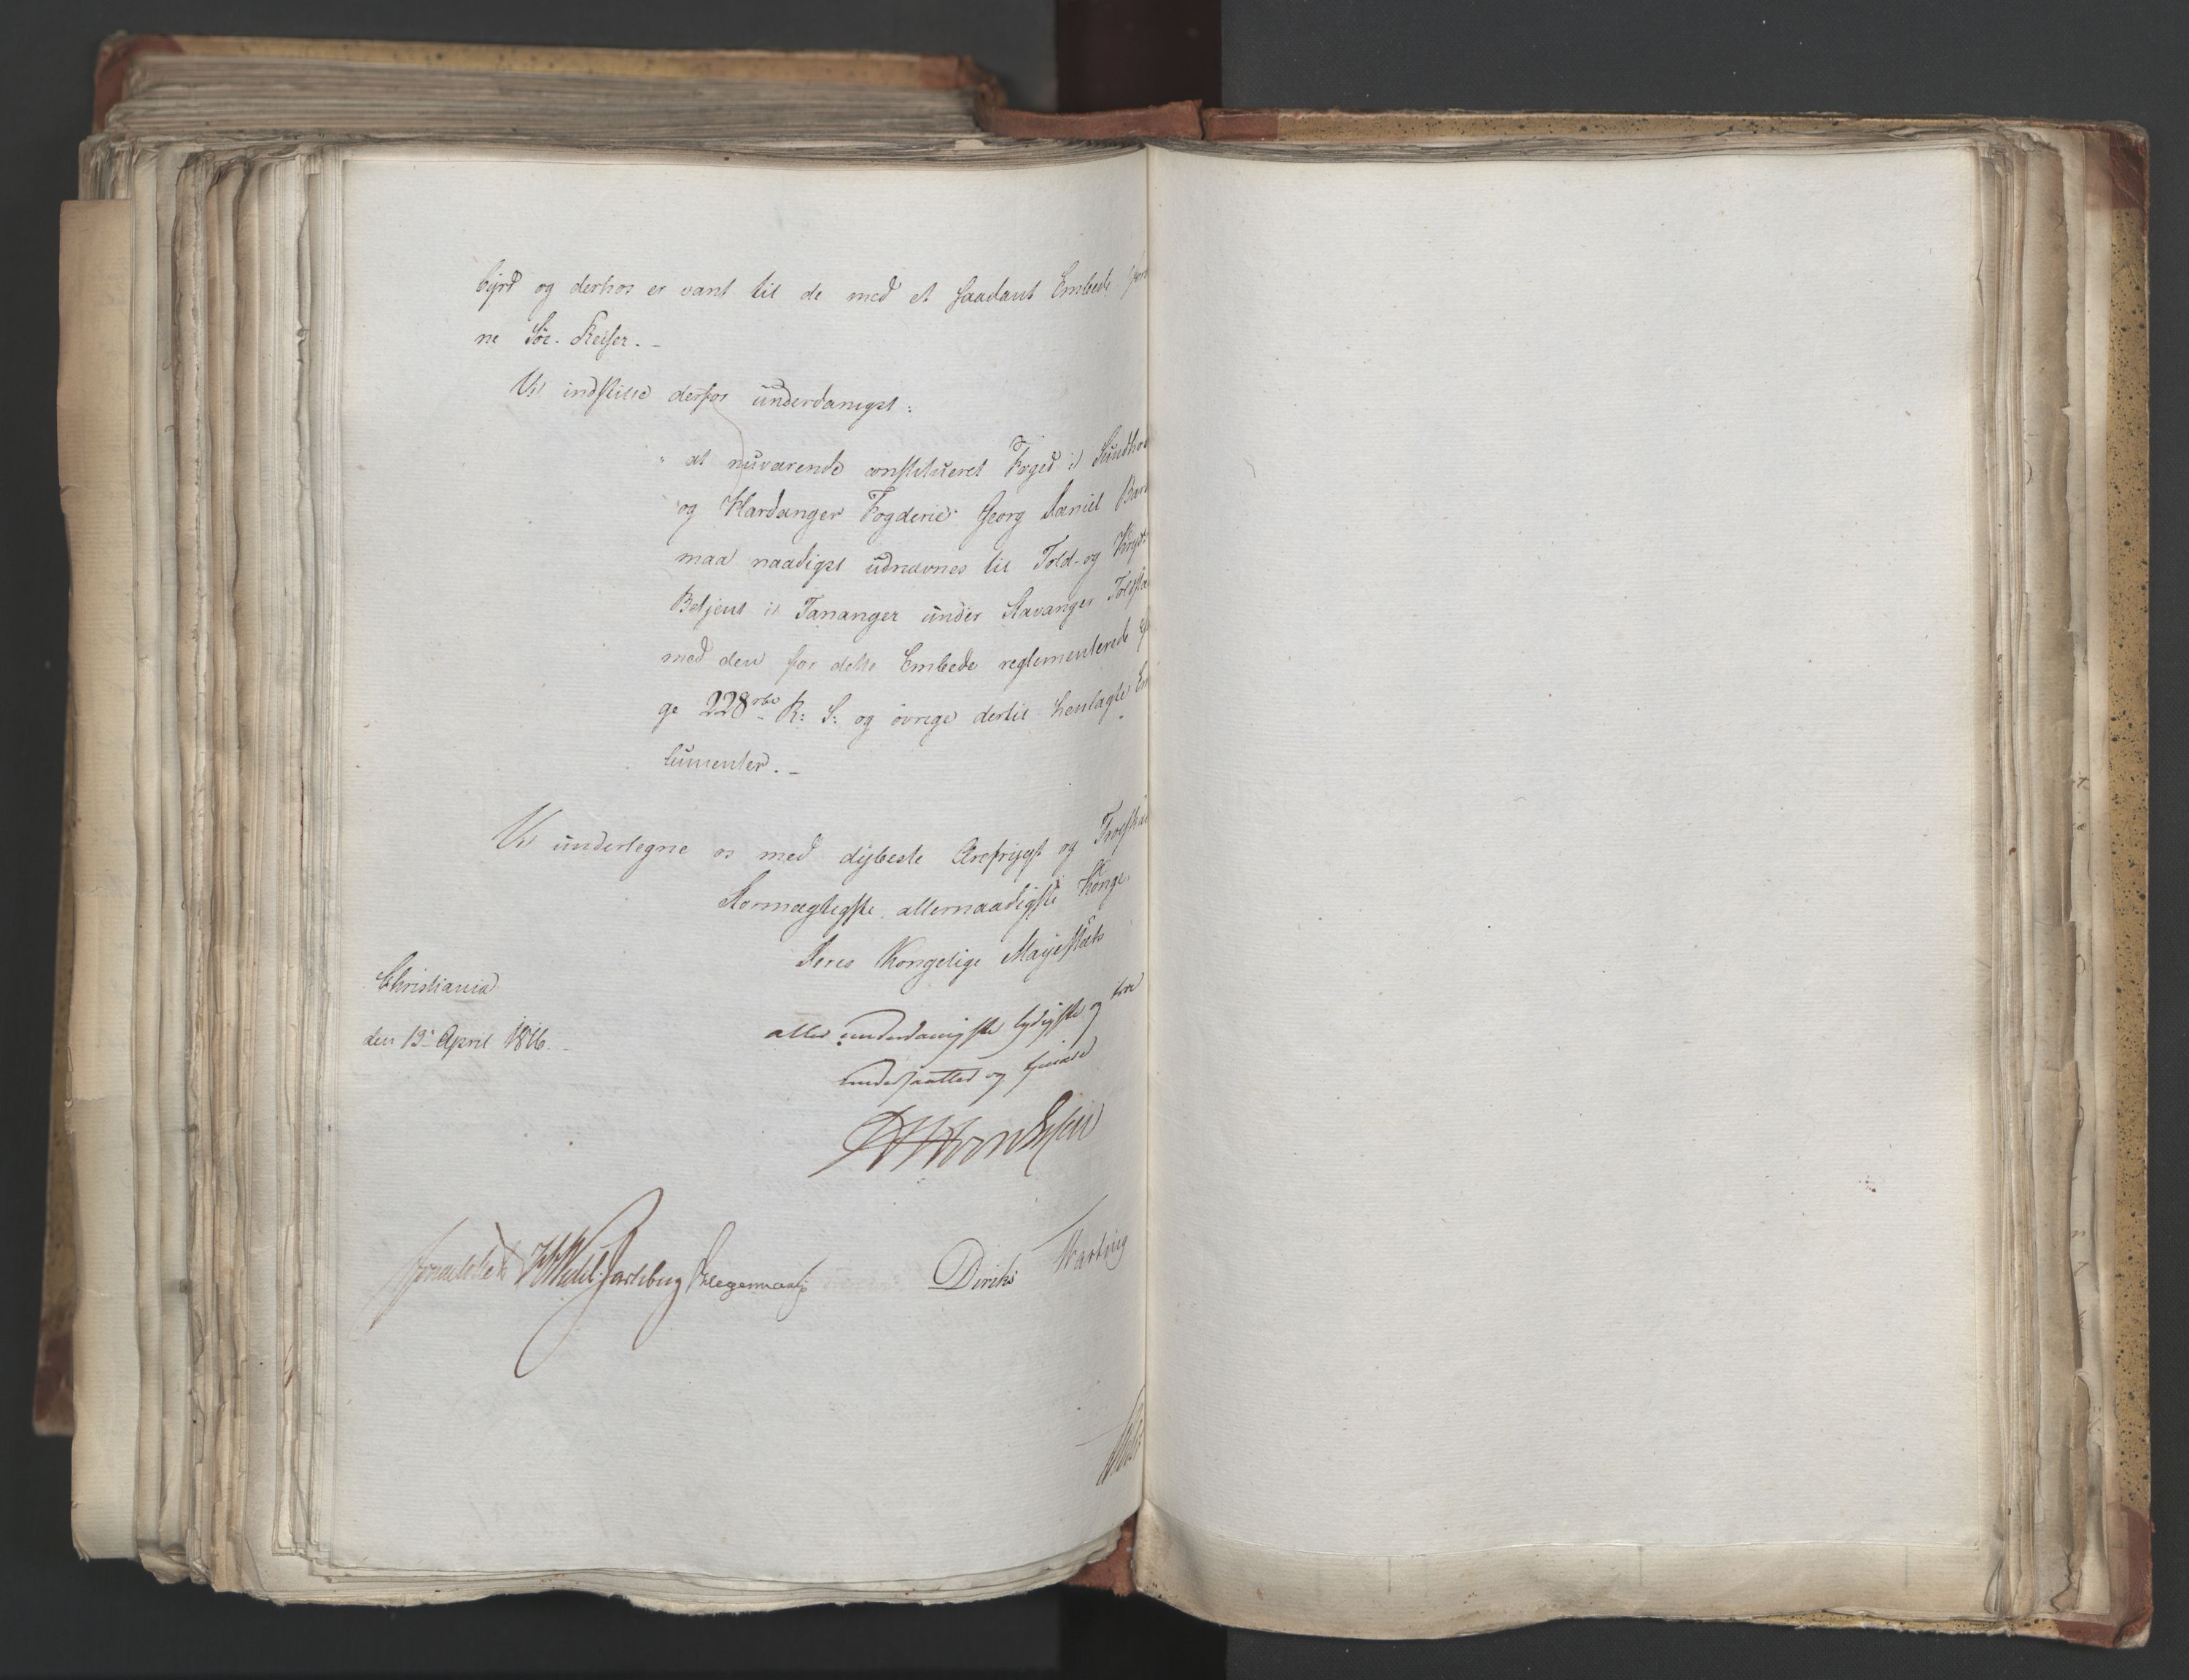 byrd og derhos er vant til de med et saadant Embede
ne Söe-Reiser. -
Vi indstille derfor underdanigst:
" at nuværende constitueret Foged i Sundhor
" og Hardanger Fogderie Georg Daniel Bar
maa naadigst udnævnes til Told- og
Betjent i Tananger under Stavanger Toldsta
med den for dette Embede reglementerede
ge 228 rbd R: S: og övrige dertil henlagte Em
lumenter. -
Vi undertegne os med dybeste Ærefrygt og Troeska
Stormægtigste allernaadigste Konge
Deres Kongelige Majestæts
Christiania
den 13de April 1816. -
aller underdanigste lydigste og troe
undersaatter og tjenere
Sommerhielm HWedelJarlsberg Hegermann
Diriks